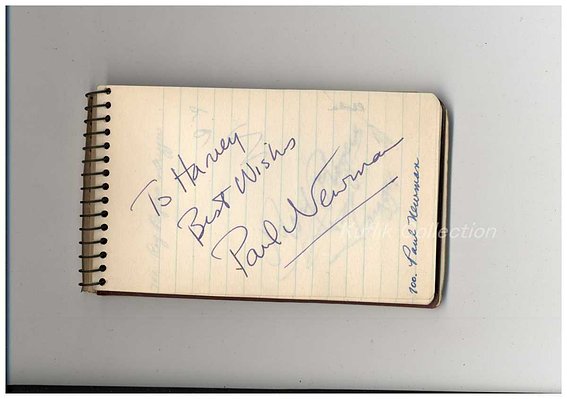 To Harvey
Best Wishes
Paul Newman
100. Paul Newman
Kurlik Collection